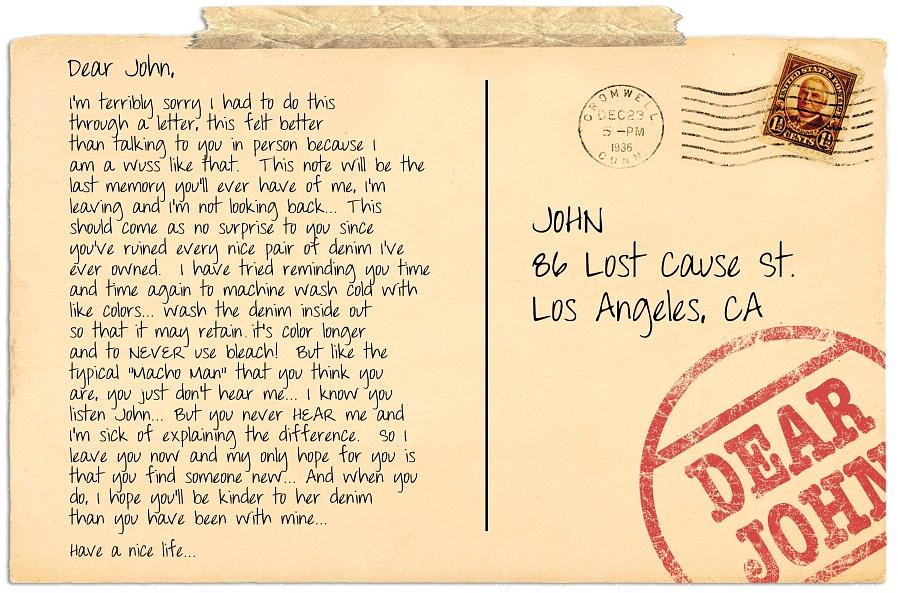 Dear John,
I'm terribly sorry I had to do this
through a letter, this felt better
than talking to you in person because I
am a wuss like that. This note will be the
last memory you'll ever have of me, I'm
leaving and I'm not looking back... This
should come as no surprise to you since
you've ruined every nice pair of denim I've
ever owned. I have tried reminding you time
and time again to machine wash cold with
like colors... wash the denim inside out
so that it may retain it's color longer
and to NEVER use bleach! But like the
typical "Macho Man" that you think you
are, you just don't hear me... I know you
listen John... But you never HEAR me and
I'm sick of explaining the difference. So I
leave you now and my only hope for you is
that you find someone new... And when you
do, I hope you'll be kinder to her denim
than you have been with mine...
Have a nice life...
CROMWELL
DEC23
5-PM
1936
CONN.
UNITED STATES POSTAGE
1½ CENTS 1½
JOHN
86 Lost Cause St.
Los Angeles, CA
DEAR
JOHN